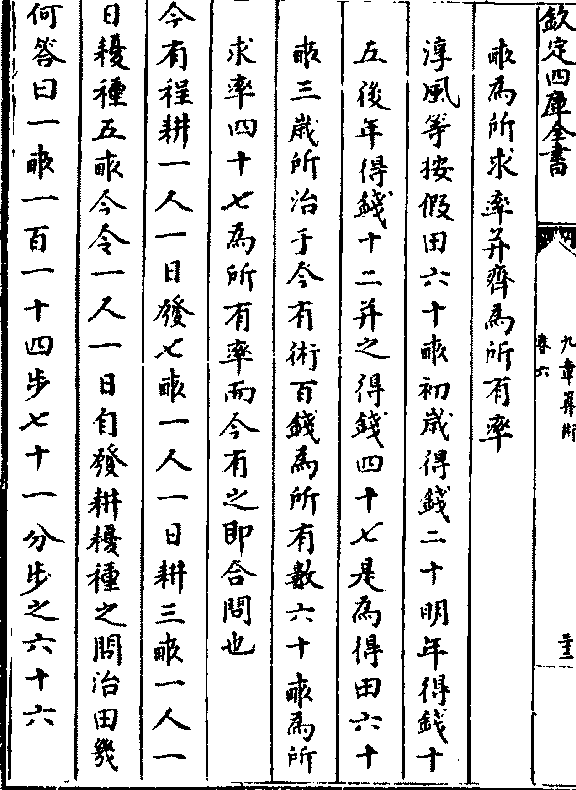 欽定四庫全書
九章算術
卷六
畞為所求率并齊為所有率
淳風等按假田六十畞初歲得錢二十明年得錢十
五後年得錢十二并之得錢四十七是為得田六十
畞三歲所治于今有術百錢為所有數六十畞為所
求率四十七為所有率而今有之即合問也
今有程耕一人一日發七畞一人一日耕三畞一人一
日耰種五畞今令一人一日自發耕耰種之問治田幾
何答曰一畞一百一十四步七十一分步之六十六